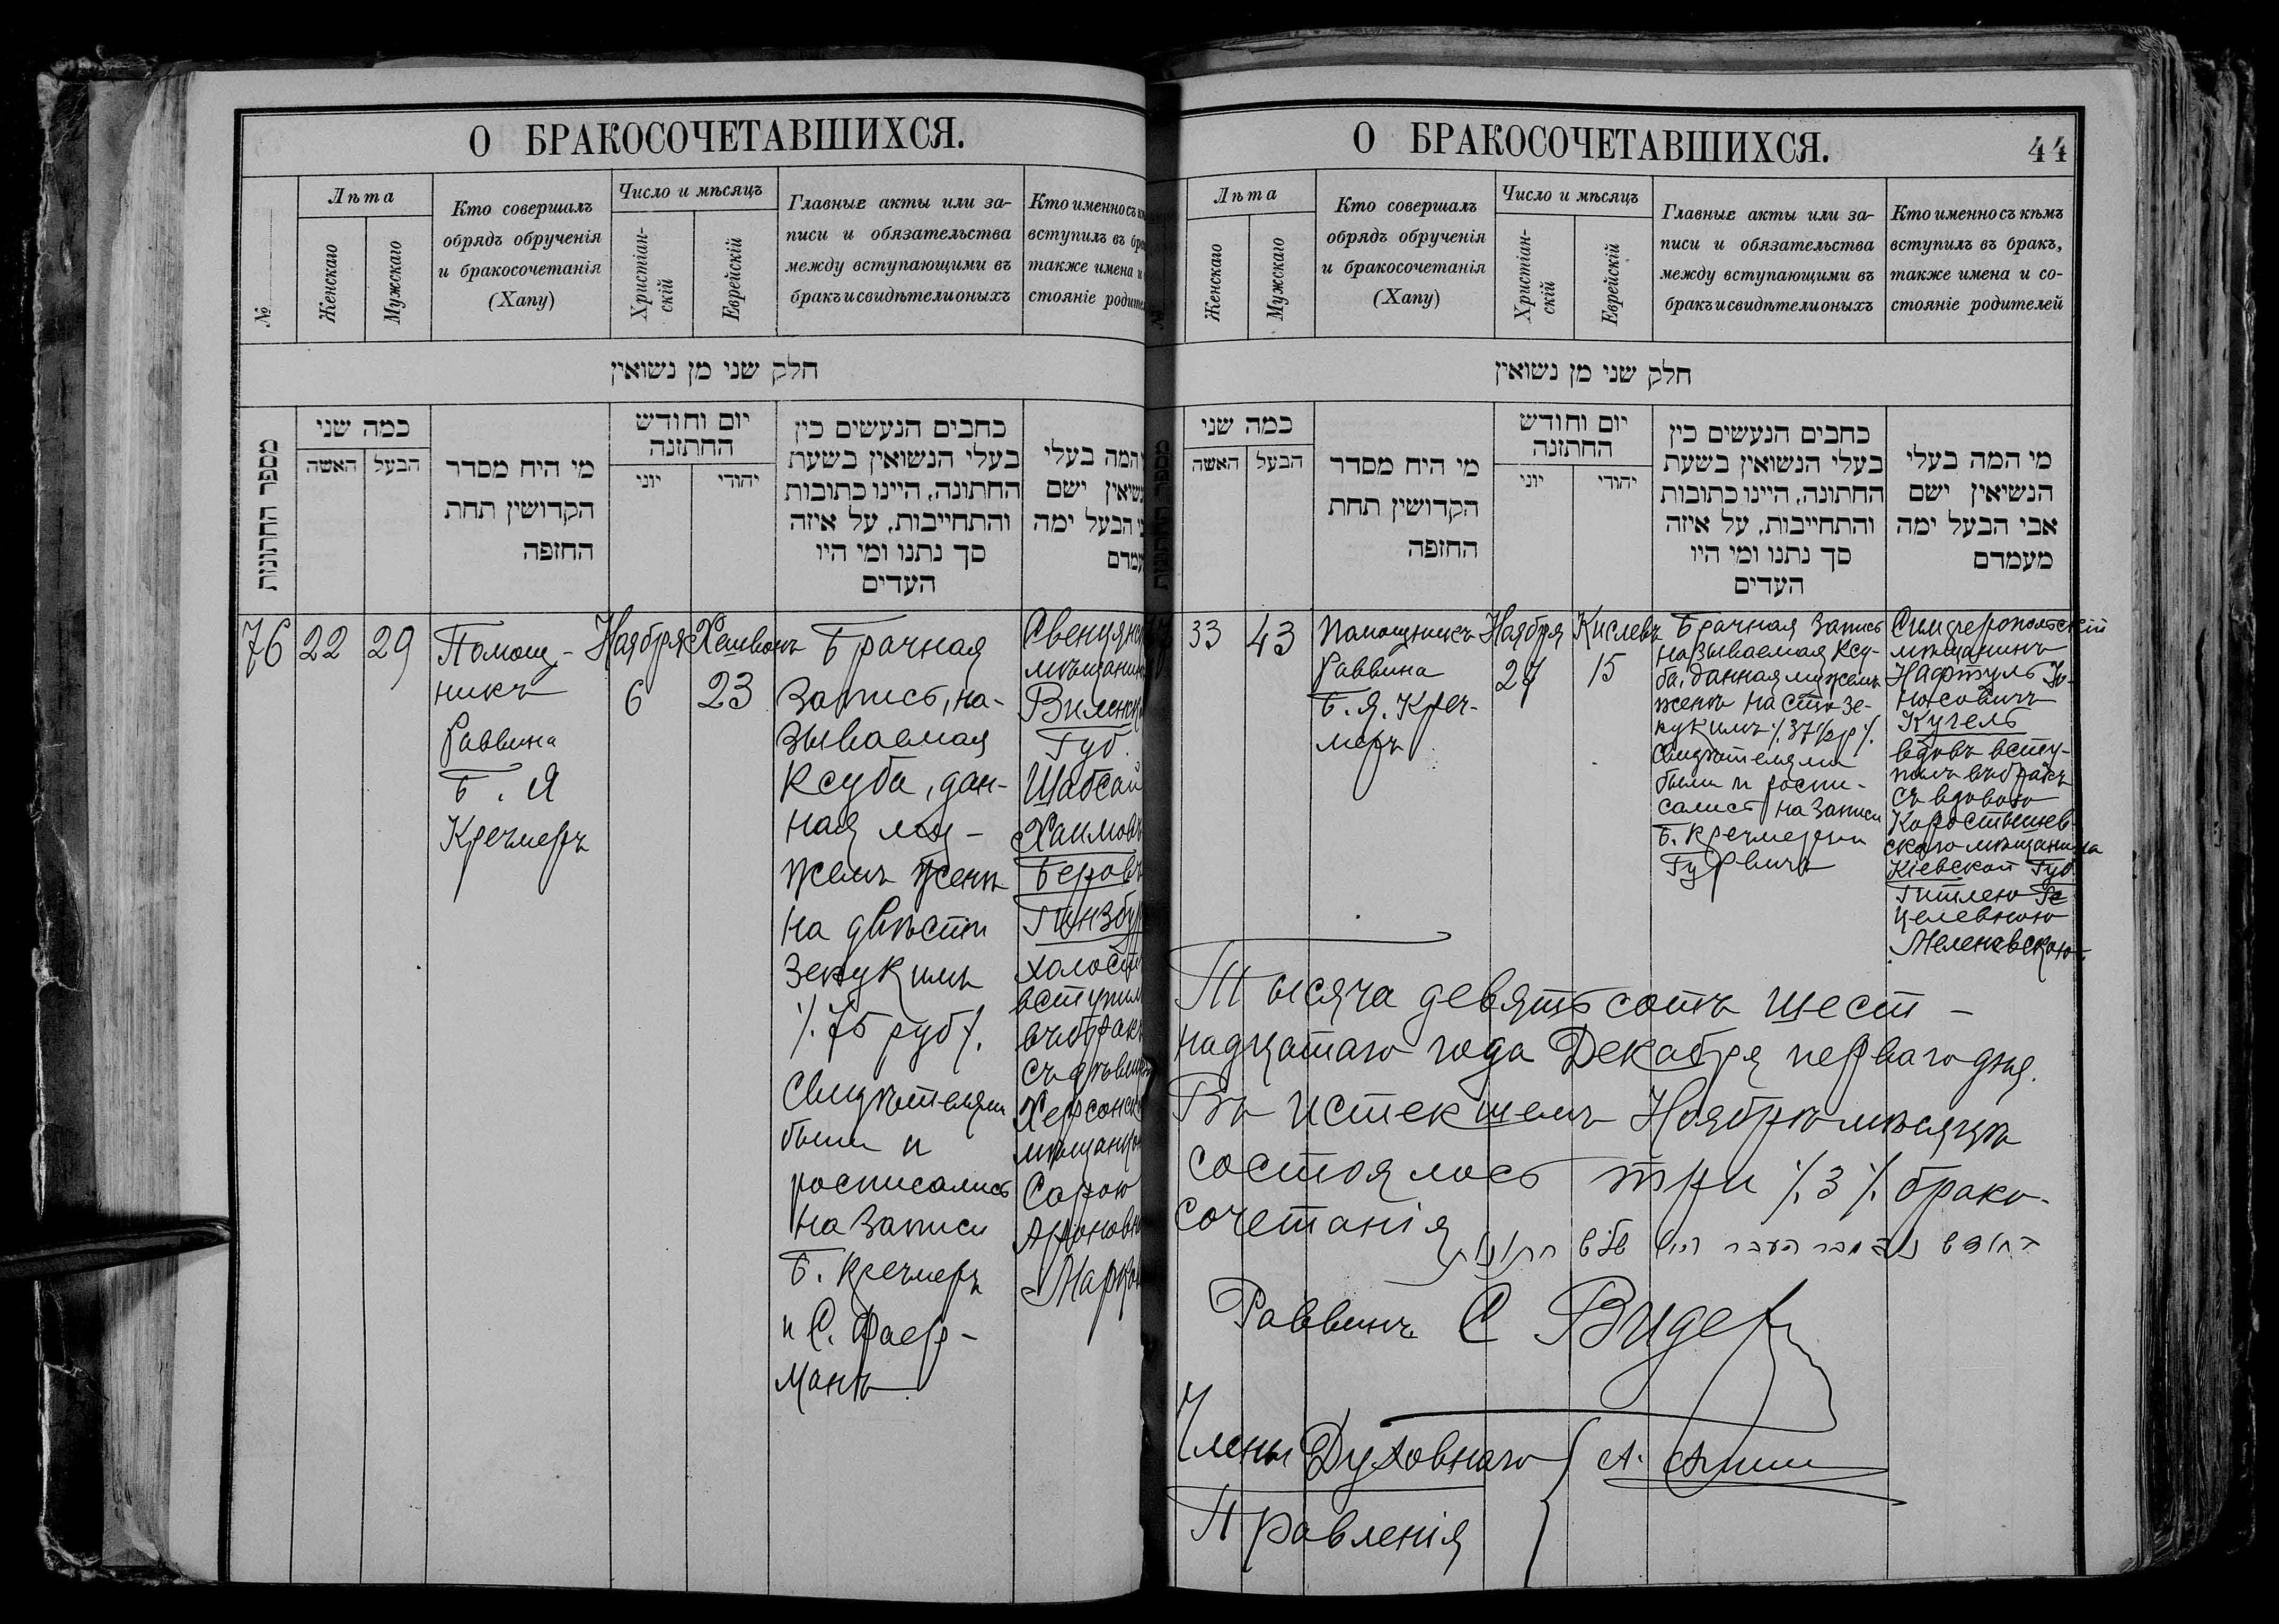 О БРАКОСОЧЕТАВШИХСЯ.
№
Лѣта
Женскаго
Мужскаго
Кто совершалъ
обрядъ обрученія
и бракосочетанія
(Хапу)
Число и мѣсяцъ
Христіан-
скій
Еврейскій
Главные акты или за-
писи и обязательства
между вступающими въ
бракъ и свидѣтели оныхъ
Кто именно съ
вступилъ въ
также имена и
стояніе
חלק שני מן נשואין
מספר החתונות
כמה שני
האשה
הבעל
מי היה מסדר
הקדושין תחת
החופה
יום וחודש
החתונה
יוני
יהודי
כתבים הנעשים בין
בעלי הנשואין בשעת
החתונה, היינו כתובות
והתחייבות, על איזה
סך נתנו ומי היו
העדים
המה בעלי
ישם
הבעל ימה
76
22
29
Помощ-
никъ
Раввина
Б. Я
Кречмеръ
Ноября
6
Хешвонъ
23
Брачная
запись, на-
зываемая
ксуба, дан-
ная му-
жемъ женѣ
на двѣсти
зекукимъ
/. 75 руб /.
Свидѣтелями
были и
росписались
на записи
Б. Кречмеръ
и С. Фаер-
манъ
мѣщанинъ
Губ.
Шабсай
Холостъ
съ дѣвицею
Сарою
О БРАКОСОЧЕТАВШИХСЯ.
44
Лѣта
Женскаго
Мужскаго
Кто совершалъ
обрядъ обрученія
и бракосочетанія
(Хапу)
Число и мѣсяцъ
Христіан-
скій
Еврейскій
Главные акты или за-
писи и обязательства
между вступающими въ
бракъ и свидѣтели оныхъ
Кто именно съ кѣмъ
вступилъ въ бракъ,
также имена и со-
стояніе родителей
חלק שני מן נשואין
כמה שני
האשה
הבעל
מי היה מסדר
הקדושין תחת
החופה
יום וחודש
החתונה
יוני
יהודי
כתבים הנעשים בין
בעלי הנשואין בשעת
החתונה, היינו כתובות
והתחייבות, על איזה
סך נתנו ומי היו
העדים
מי המה בעלי
הנשיאין ישם
אבי הבעל ימה
מעמדם
33
43
Помощникъ
Раввина
Б. Я. Креч-
меръ
Ноября
27
Кислевъ
15
Брачная запись
называемая ксу-
ба, данная мужемъ
женѣ на сто зе-
кукимъ /. 37½ р /.
Свидѣтелями
были и роспи-
сались на записи
Б. Кречмеръ и
Гурвичъ
Симферопольскій
мѣщанинъ
Нафтуль
Кугель
вдовъ всту-
пилъ въ бракъ
съ вдовою
Коростышев-
скаго мѣщанина
Кіевской Губ
Гитлею Ге-
целевною
Меленевскою.
Тысяча девятьсотъ шест-
надцатаго года Декабря перваго дня.
Въ истекшемъ Ноябрѣ мѣсяцѣ
состоялось три /. 3 /. брако-
сочетанія
Раввинъ С Видер
Члены Духовнаго
Правленія